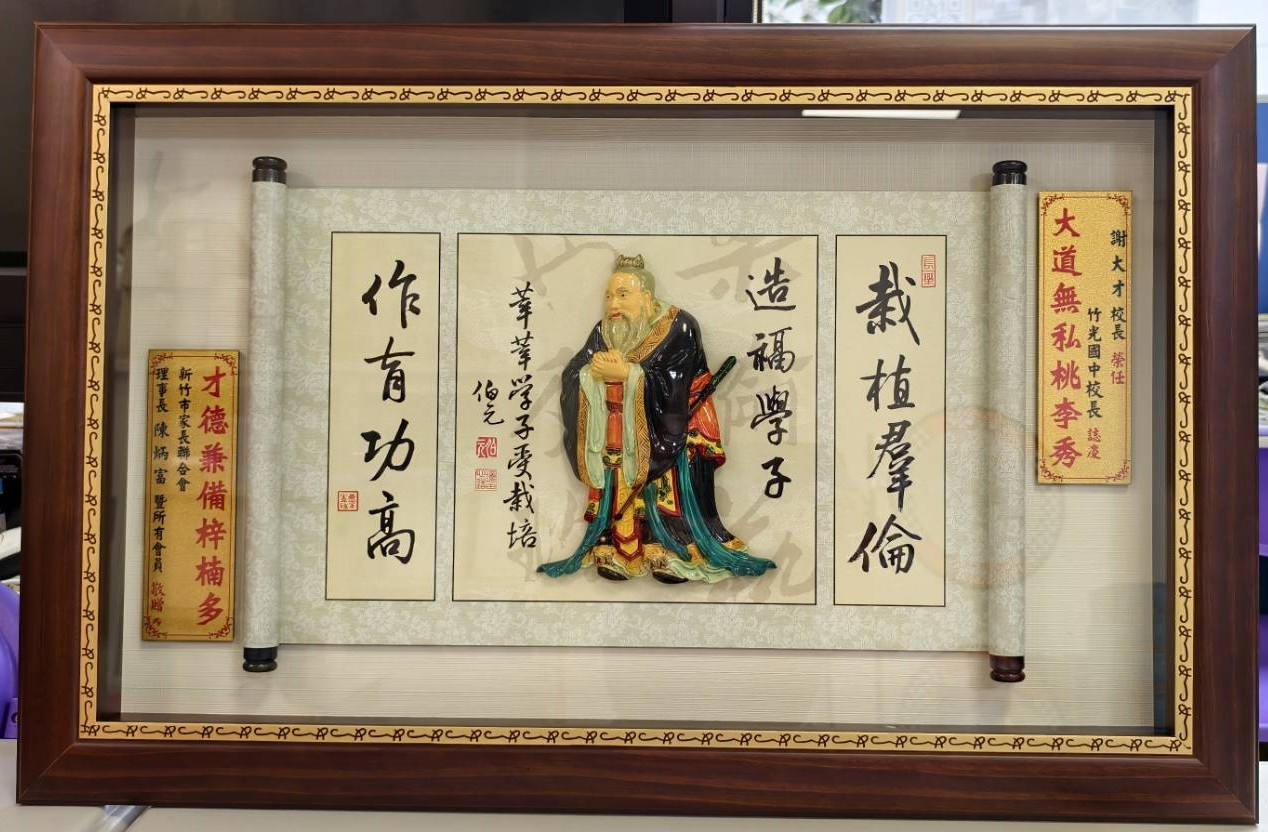 謝大才校長 榮任
竹光國中校長 誌慶
大道無私桃李秀
栽植羣倫
造福學子
莘莘学子受栽培
伯元
作育功高
才德兼備梓楠多
新竹市家長聯合會
理事長 陳炳富 暨所有會員 敬贈